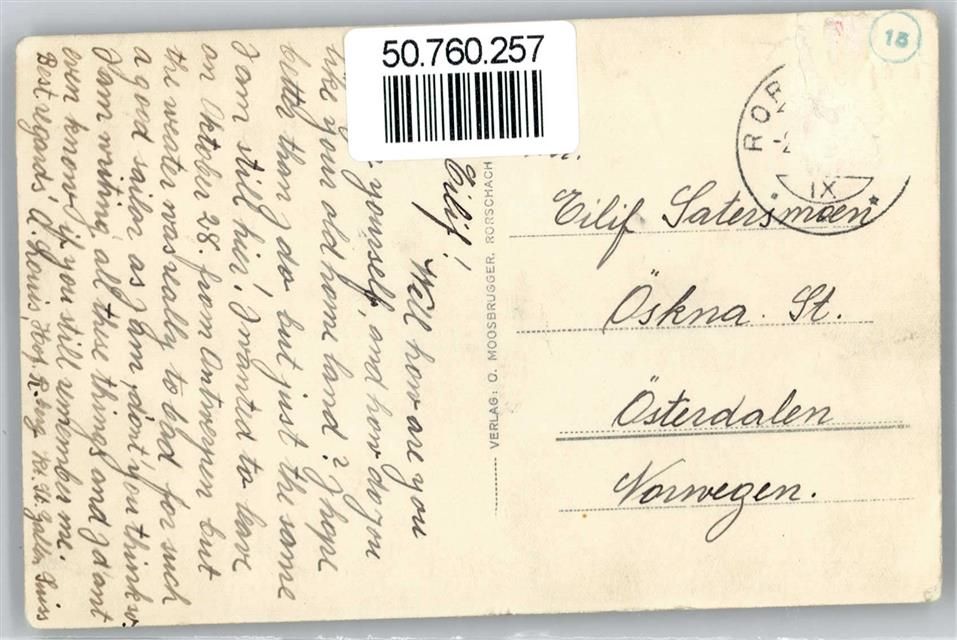 50.760.257
18
ROR
IX
Mr.
Eilif Satersmoen
Öskna. St.
Österdalen
Norwegen.
VERLAG: O. MOOSBRUGGER, RORSCHACH
Eilif!
Will how are you
yourself, and how do you
like your old home land? I hope
better than I do but just the same
I am still hier! I wanted to leave
on Oktober 28. from Antwerpen but
the weater was really to bad for such
a good sailor as I am, dont' you think so.
I am writing all these things and I dont
even know if you still remember me.
Best regards, A.
St. Gallen Suiss